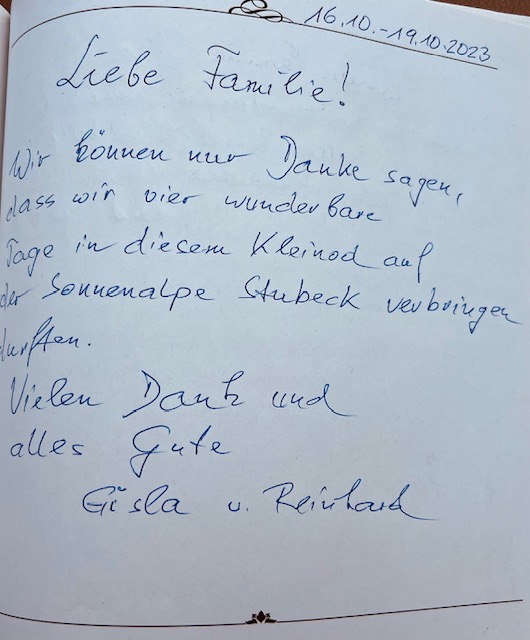 16.10.-19.10.2023
Liebe Familie!
Wir können nur Danke sagen,
dass wir vier wunderbare
Tage in diesem Kleinod auf
der Sonnenalpe Stubeck verbringen
durften.
Vielen Dank und
alles Gute
Gisla u. Reinhard